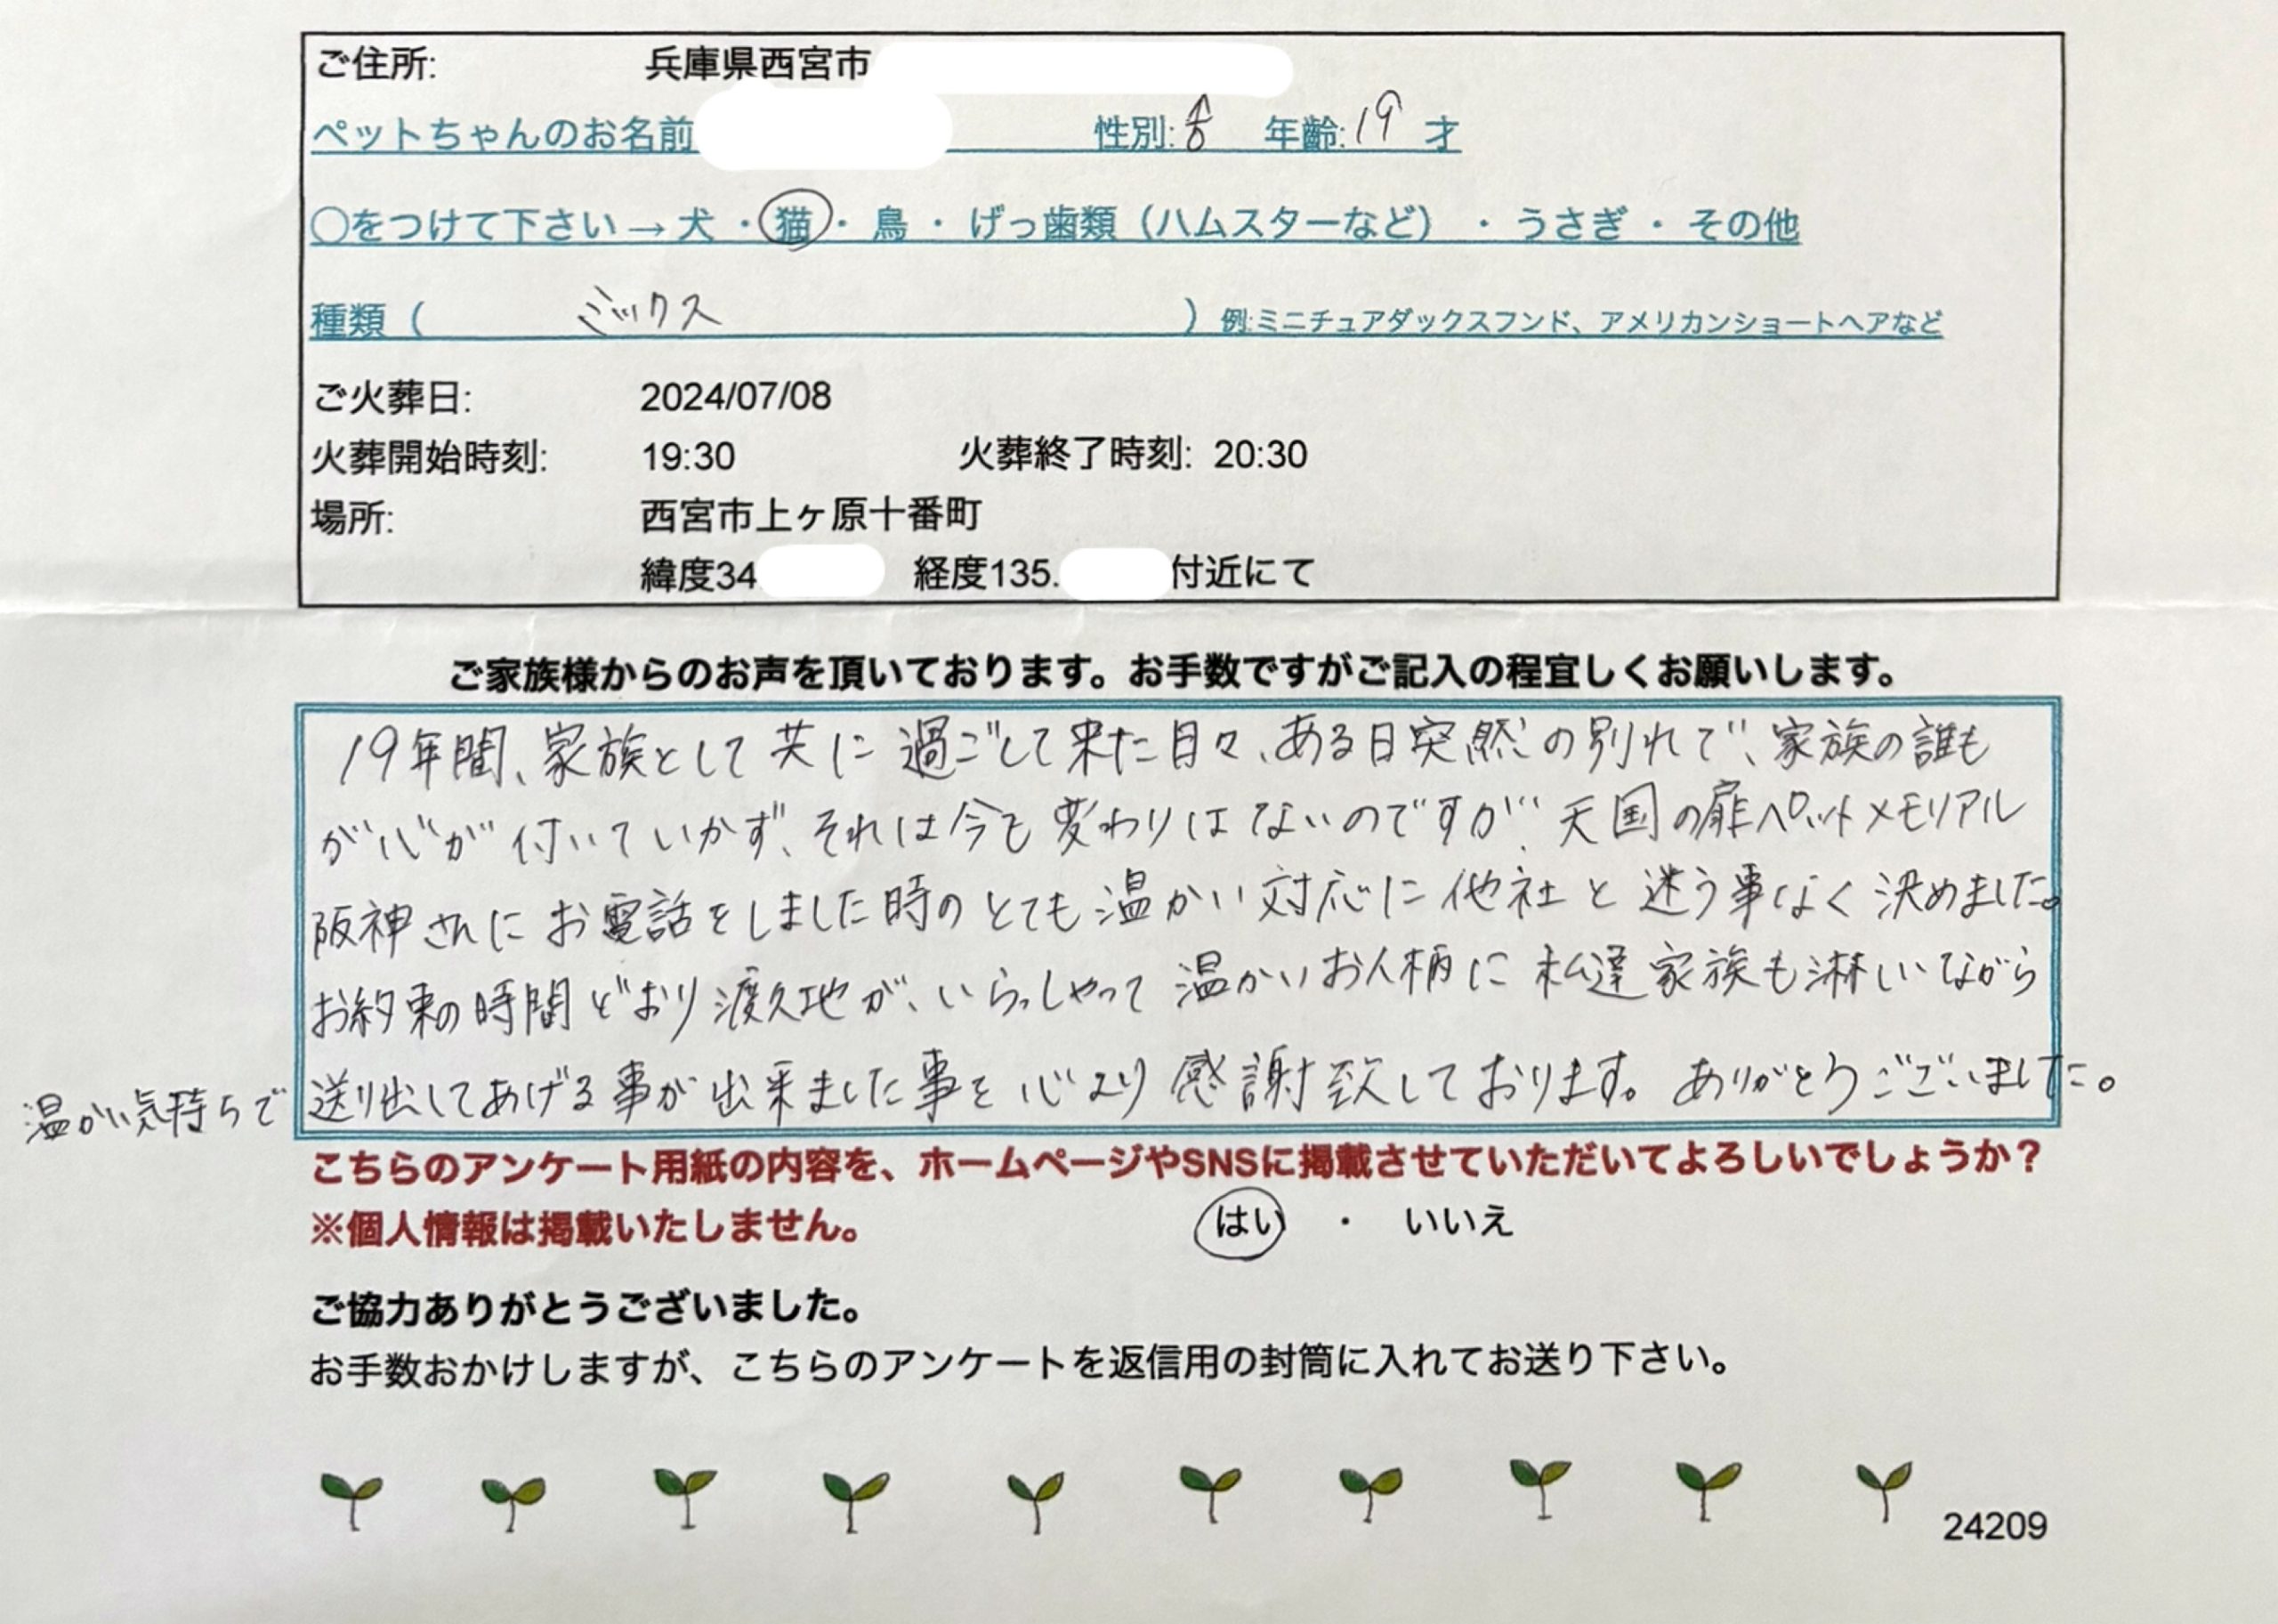 ご住所: 兵庫県西宮市
ペットちゃんのお名前 性別:♂ 年齢:19才
○をつけて下さい→犬・猫・鳥・げっ歯類（ハムスターなど）・うさぎ・その他
種類（ ミックス ）例:ミニチュアダックスフンド、アメリカンショートヘアなど
ご火葬日: 2024/07/08
火葬開始時刻: 19:30 火葬終了時刻: 20:30
場所: 西宮市上ヶ原十番町
緯度34 経度135. 付近にて
ご家族様からのお声を頂いております。お手数ですがご記入の程宜しくお願いします。
19年間、家族として共に過ごして来た日々、ある日突然の別れで、家族の誰も
が心が付いていかず、それは今も変わりはないのですが、天国の扉ペットメモリアル
阪神さんにお電話をしました時のとても温かい対応に他社と迷う事なく決めました。
お約束の時間どおり渡久地が、いらっしゃって温かいお人柄に私達家族も淋しいながら
温かい気持ちで送り出してあげる事が出来ました事を心より感謝致しております。ありがとうございました。
こちらのアンケート用紙の内容を、ホームページやSNSに掲載させていただいてよろしいでしょうか？
※個人情報は掲載いたしません。 はい ・ いいえ
ご協力ありがとうございました。
お手数おかけしますが、こちらのアンケートを返信用の封筒に入れてお送り下さい。
24209